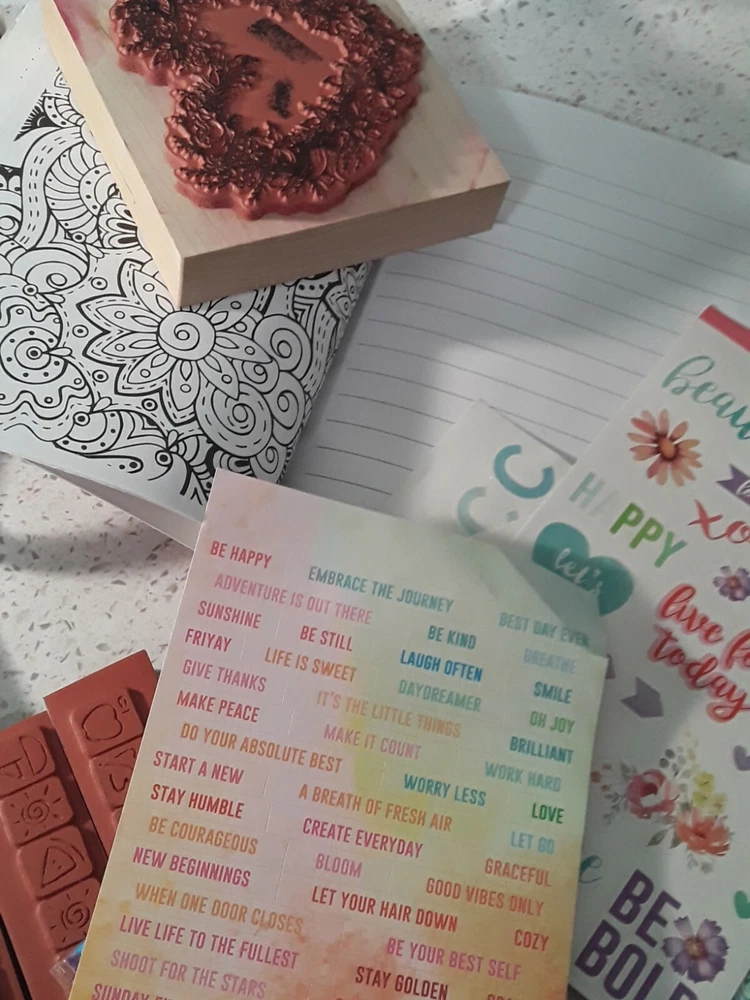 BE HAPPY
EMBRACE THE JOURNEY
ADVENTURE IS OUT THERE
BEST DAY EVER
SUNSHINE
BE STILL
BE KIND
BREATHE
FRIYAY
LIFE IS SWEET
LAUGH OFTEN
SMILE
GIVE THANKS
DAYDREAMER
OH JOY
MAKE PEACE
IT'S THE LITTLE THINGS
BRILLIANT
DO YOUR ABSOLUTE BEST
MAKE IT COUNT
WORK HARD
START A NEW
WORRY LESS
LOVE
STAY HUMBLE
A BREATH OF FRESH AIR
LET GO
BE COURAGEOUS
CREATE EVERYDAY
GRACEFUL
NEW BEGINNINGS
BLOOM
GOOD VIBES ONLY
WHEN ONE DOOR CLOSES
LET YOUR HAIR DOWN
COZY
LIVE LIFE TO THE FULLEST
BE YOUR BEST SELF
SHOOT FOR THE STARS
STAY GOLDEN
SUNDAY
HAPPY
xo
let's
live
today
BE
BOLD